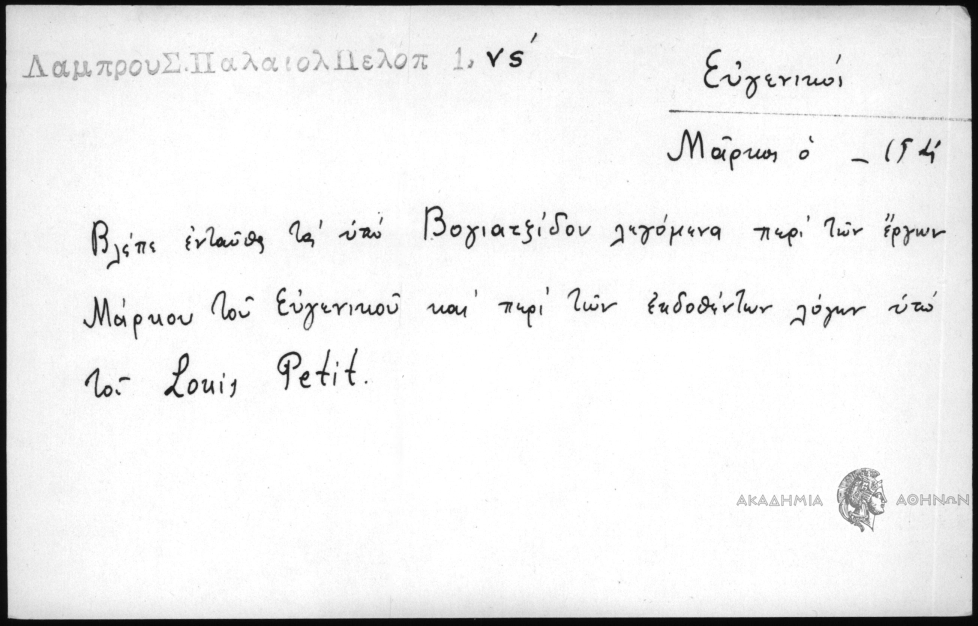 ΛαμπρουΣ.ΠαλαιολΠελοπ 1, νς΄
Εὐγενικοί
Μᾶρκος ὁ –
Βλέπε ἐνταῦθα τά ὑπό Βογιατζίδου λεγόμενα περί τῶν ἔργων
Μάρκου τοῦ Εὐγενικοῦ καί περί τῶν ἐκδοθέντων λόγων ὑπό
τοῦ Louis Petit.
ΑΚΑΔΗΜΙΑ ΑΘΗΝΩΝ